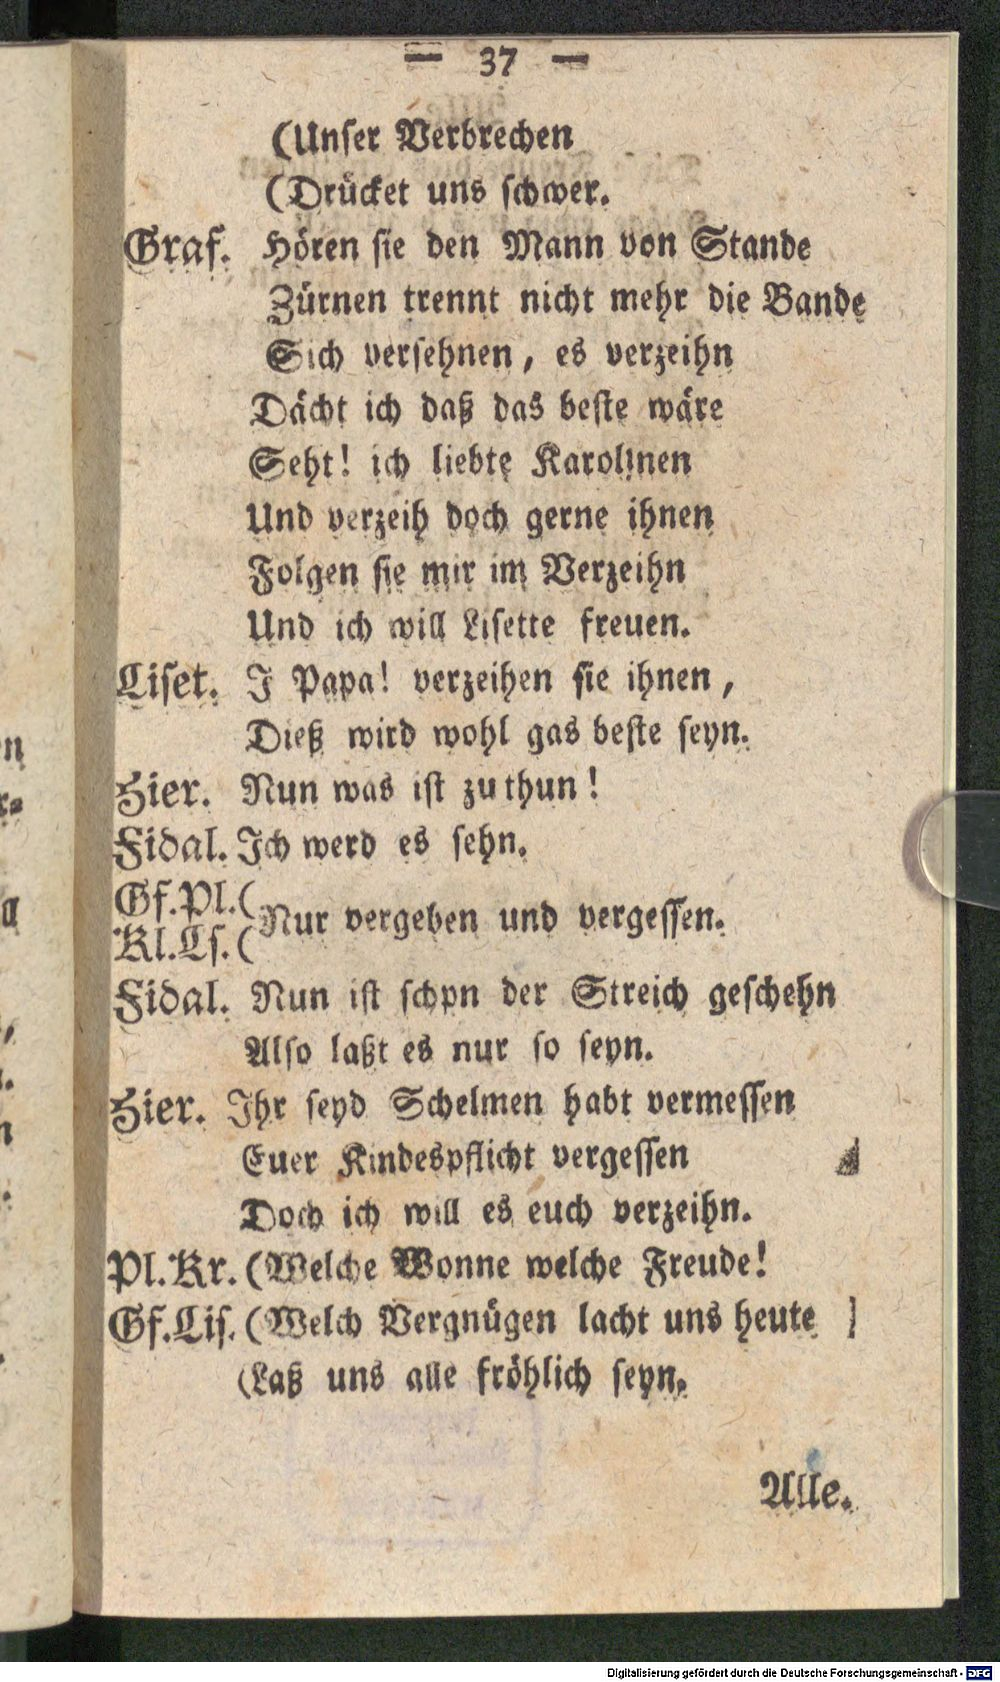 — 37 —
(Unser Verbrechen
(Drücket uns schwer.
Graf. Hören sie den Mann von Stande
Zürnen trennt nicht mehr die Bande
Sich versehnen, es verzeihn
Dächt ich daß das beste wäre
Seht! ich liebte Karolinen
Und verzeih doch gerne ihnen
Folgen sie mir im Verzeihn
Und ich will Lisette freuen.
Liset. J Papa! verzeihen sie ihnen,
Dieß wird wohl gas beste seyn.
Hier. Nun was ist zu thun!
Fidal. Ich werd es sehn.
Gf.Pl.(
Nur vergeben und vergessen.
Kl.Ls.(
Fidal. Nun ist schpn der Streich geschehn
Also laßt es nur so seyn.
Hier. Ihr seyd Schelmen habt vermessen
Euer Kindespflicht vergessen
Doch ich will es euch verzeihn.
Pl.Kr. (Welche Wonne welche Freude!
Gf.Lis. (Welch Vergnügen lacht uns heute
(Laß uns alle fröhlich seyn.
Alle.
Digitalisierung gefördert durch die Deutsche Forschungsgemeinschaft - DFG